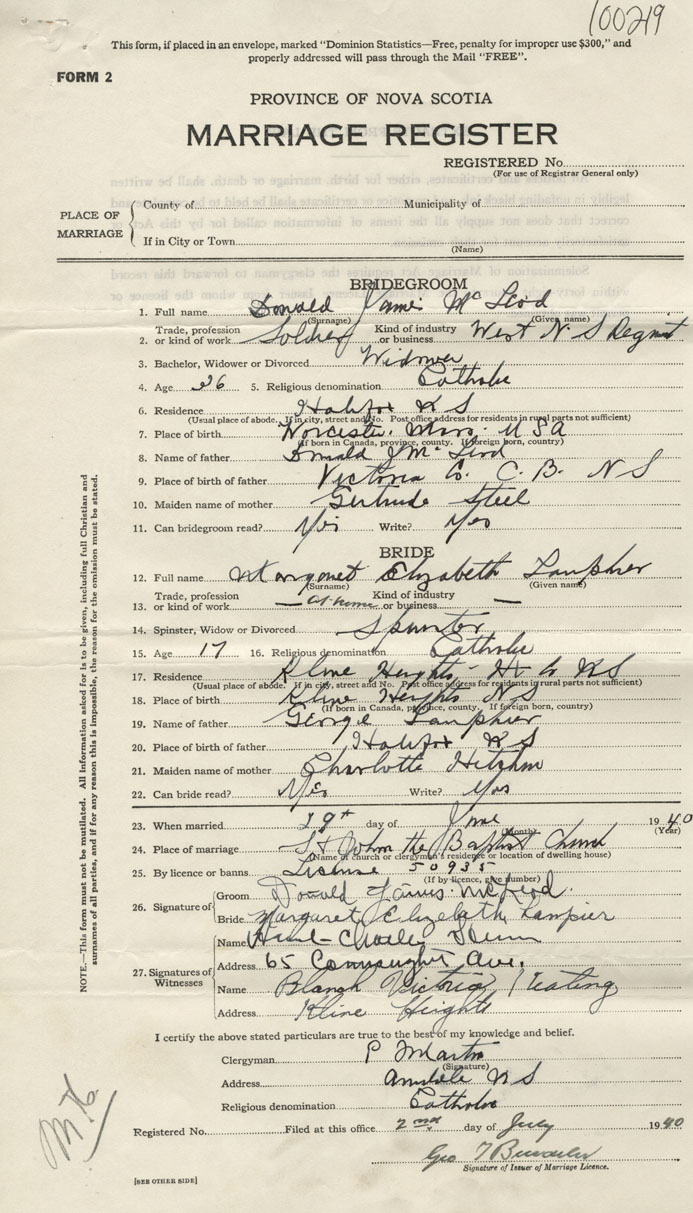 100219
This form, if placed in an envelope, marked "Dominion Statistics—Free, penalty for improper use $300," and
properly addressed will pass through the Mail "FREE".
FORM 2
PROVINCE OF NOVA SCOTIA
MARRIAGE REGISTER
REGISTERED No.
(For use of Registrar General only)
PLACE OF MARRIAGE
County of Municipality of
If in City or Town
(Name)
BRIDEGROOM
1. Full name Donald James McLeod
(Surname) (Given name)
2. Trade, profession or kind of work Soldier Kind of industry or business West N S Regmt
3. Bachelor, Widower or Divorced Widower
4. Age 26 5. Religious denomination Catholic
6. Residence Halifax N S
(Usual place of abode. If in city, street and No. Post office address for residents in rural parts not sufficient)
7. Place of birth Worcester, Mass. USA
(If born in Canada, province, county. If foreign born, country)
8. Name of father Donald J McLeod
9. Place of birth of father Victoria Co. C. B. N S
10. Maiden name of mother Gertrude Steel
11. Can bridegroom read? Yes Write? Yes
BRIDE
12. Full name Margaret Elizabeth Lamphier
(Surname) (Given name)
13. Trade, profession or kind of work — at home Kind of industry or business —
14. Spinster, Widow or Divorced Spinster
15. Age 17 16. Religious denomination Catholic
17. Residence Kline Heights - Hx Co NS
(Usual place of abode. If in city, street and No. Post office address for residents in rural parts not sufficient)
18. Place of birth Kline Heights NS
(If born in Canada, province, county. If foreign born, country)
19. Name of father George Lamphier
20. Place of birth of father Halifax N S
21. Maiden name of mother Charlotte
22. Can bride read? Yes Write? Yes
23. When married 29th day of June 1940
(Month) (Year)
24. Place of marriage St John the Baptist Church
(Name of church or clergyman's residence or location of dwelling house)
25. By licence or banns License 50935
(If by licence, give number)
26. Signature of
Groom Donald James McLeod.
Bride Margaret Elizabeth Lampier
27. Signatures of Witnesses
Name Charles
Address 65 Connaught Ave.
Name Blanch Victoria Keating
Address Kline Heights
I certify the above stated particulars are true to the best of my knowledge and belief.
Clergyman P Martin
(Signature)
Address Armdale N S
Religious denomination Catholic
Registered No. Filed at this office 2nd day of July 1940
Geo T
Signature of Issuer of Marriage Licence.
[SEE OTHER SIDE]
NOTE.—This form must not be mutilated. All information asked for is to be given, including full Christian and
surnames of all parties, and if for any reason this is impossible, the reason for the omission must be stated.